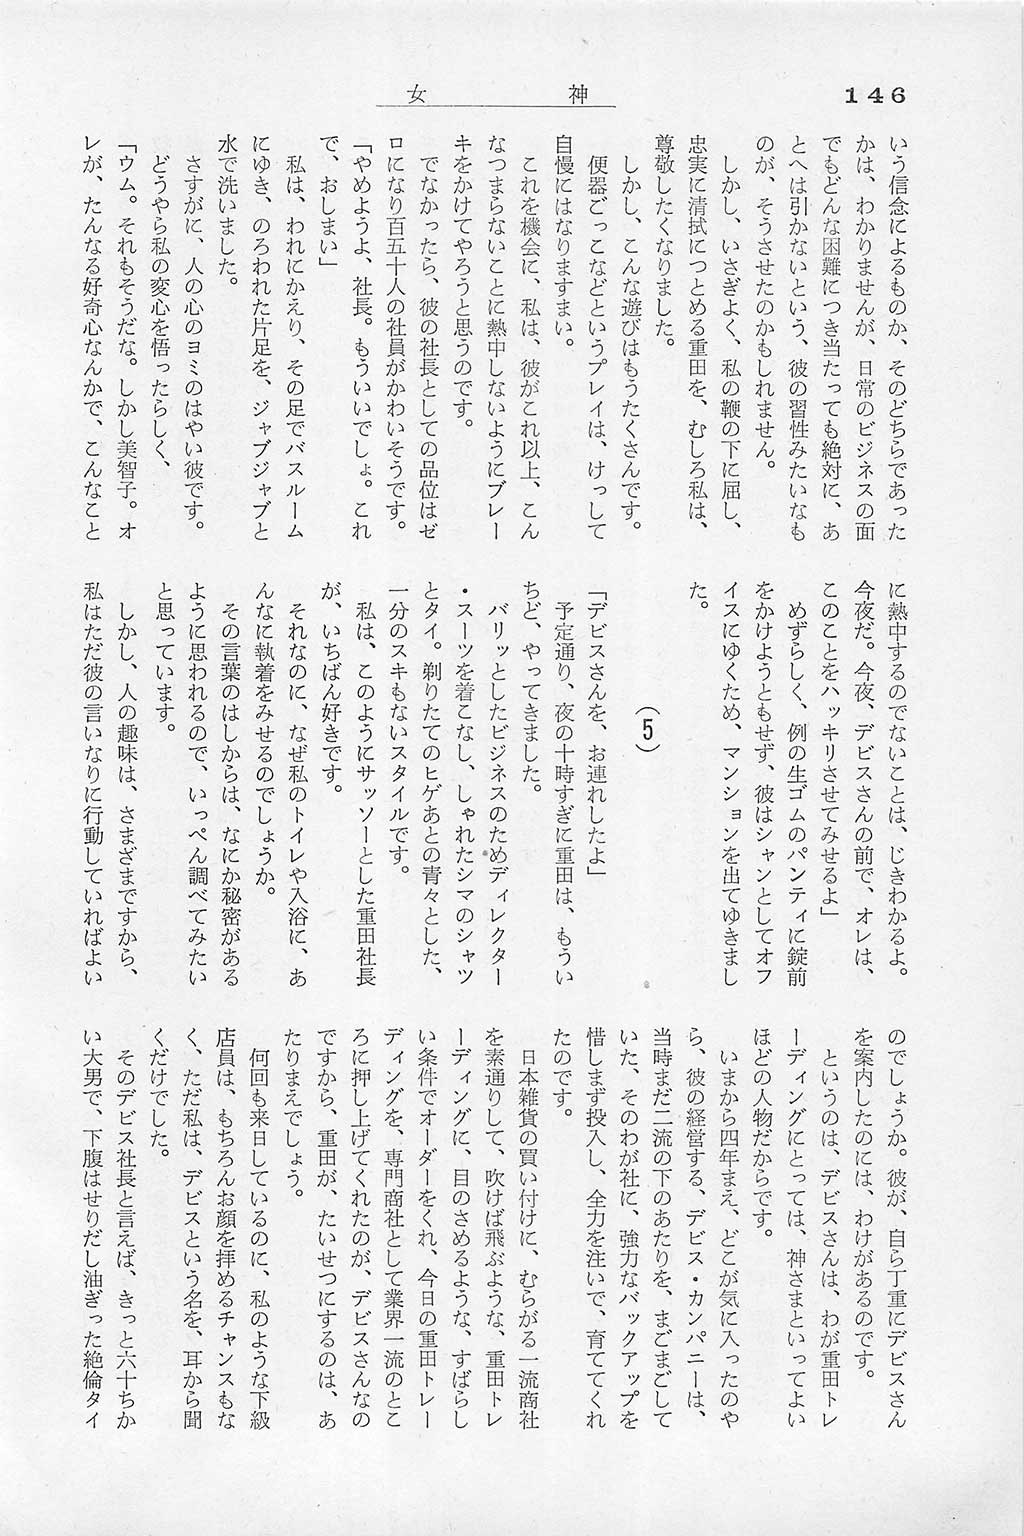 146
女神
いう信念によるものか、そのどちらであった
かは、わかりませんが、日常のビジネスの面
でもどんな困難につき当たっても絶対に、あ
とへは引かないという、彼の習性みたいなも
のが、そうさせたのかもしれません。
しかし、いさぎよく、私の鞭の下に屈し、
忠実に清拭につとめる重田を、むしろ私は、
尊敬したくなりました。
しかし、こんな遊びはもうたくさんです。
便器ごっこなどというプレイは、けっして
自慢にはなりますまい。
これを機会に、私は、彼がこれ以上、こん
なつまらないことに熱中しないようにブレー
キをかけてやろうと思うのです。
でなかったら、彼の社長としての品位はゼ
ロになり百五十人の社員がかわいそうです。
「やめようよ、社長。もういいでしょ。これ
で、おしまい」
私は、われにかえり、その足でバスルーム
にゆき、のろわれた片足を、ジャブジャブと
水で洗いました。
さすがに、人の心のヨミのはやい彼です。
どうやら私の変心を悟ったらしく、
「ウム。それもそうだな。しかし美智子。オ
レが、たんなる好奇心なんかで、こんなこと
に熱中するのでないことは、じきわかるよ。
今夜だ。今夜、デビスさんの前で、オレは、
このことをハッキリさせてみせるよ」
めずらしく、例の生ゴムのパンティに錠前
をかけようともせず、彼はシャンとしてオフ
イスにゆくため、マンションを出てゆきまし
た。
(5)
「デビスさんを、お連れしたよ」
予定通り、夜の十時すぎに重田は、もうい
ちど、やってきました。
バリッとしたビジネスのためディレクター
・スーツを着こなし、しゃれたシマのシャツ
とタイ。剃りたてのヒゲあとの青々とした、
一分のスキもないスタイルです。
私は、このようにサッソーとした重田社長
が、いちばん好きです。
それなのに、なぜ私のトイレや入浴に、あ
んなに執着をみせるのでしょうか。
その言葉のはしからは、なにか秘密がある
ように思われるので、いっぺん調べてみたい
と思っています。
しかし、人の趣味は、さまざまですから、
私はただ彼の言いなりに行動していればよい
のでしょうか。彼が、自ら丁重にデビスさん
を案内したのには、わけがあるのです。
というのは、デビスさんは、わが重田トレ
ーディングにとっては、神さまといってよい
ほどの人物だからです。
いまから四年まえ、どこが気に入ったのや
ら、彼の経営する、デビス・カンパニーは、
当時まだ二流の下のあたりを、まごまごして
いた、そのわが社に、強力なバックアップを
惜しまず投入し、全力を注いで、育ててくれ
たのです。
日本雑貨の買い付けに、むらがる一流商社
を素通りして、吹けば飛ぶような、重田トレ
ーディングに、目のさめるような、すばらし
い条件でオーダーをくれ、今日の重田トレー
ディングを、専門商社として業界一流のとこ
ろに押し上げてくれたのが、デビスさんなの
ですから、重田が、たいせつにするのは、あ
たりまえでしょう。
何回も来日しているのに、私のような下級
店員は、もちろんお顔を拝めるチャンスもな
く、ただ私は、デビスという名を、耳から聞
くだけでした。
そのデビス社長と言えば、きっと六十ちか
い大男で、下腹はせりだし油ぎった絶倫タイ